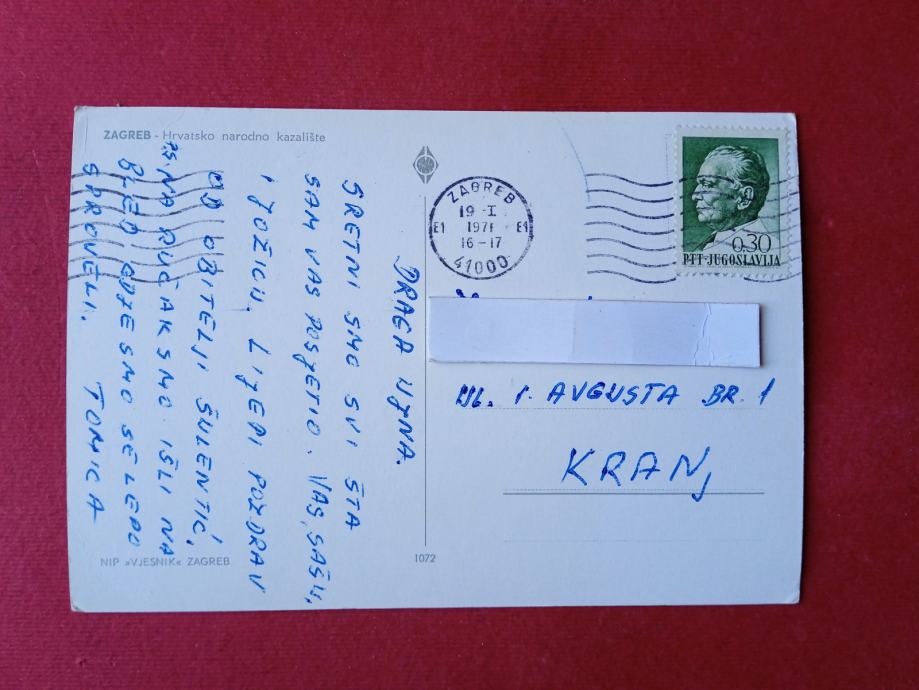 ZAGREB - Hrvatsko narodno kazalište
DRAGA UJNA.
SRETNI SMO SVI ŠTA
SAM VAS POSJETIO. VAS, SAŠU,
I JOŽICU. LIJEPI POZDRAV
OD OBITELJI ŠULENTIĆ,
NA RUČAK SMO IŠLI NA
BLED GDJE SMO SE LEPO
SPROVELI. TOMICA
NIP »VJESNIK« ZAGREB
1072
ZAGREB
19 -I
E1 1971 E1
16-17
41000
0.30
PTT-JUGOSLAVIJA
UL. 1. AVGUSTA BR. 1
KRANJ